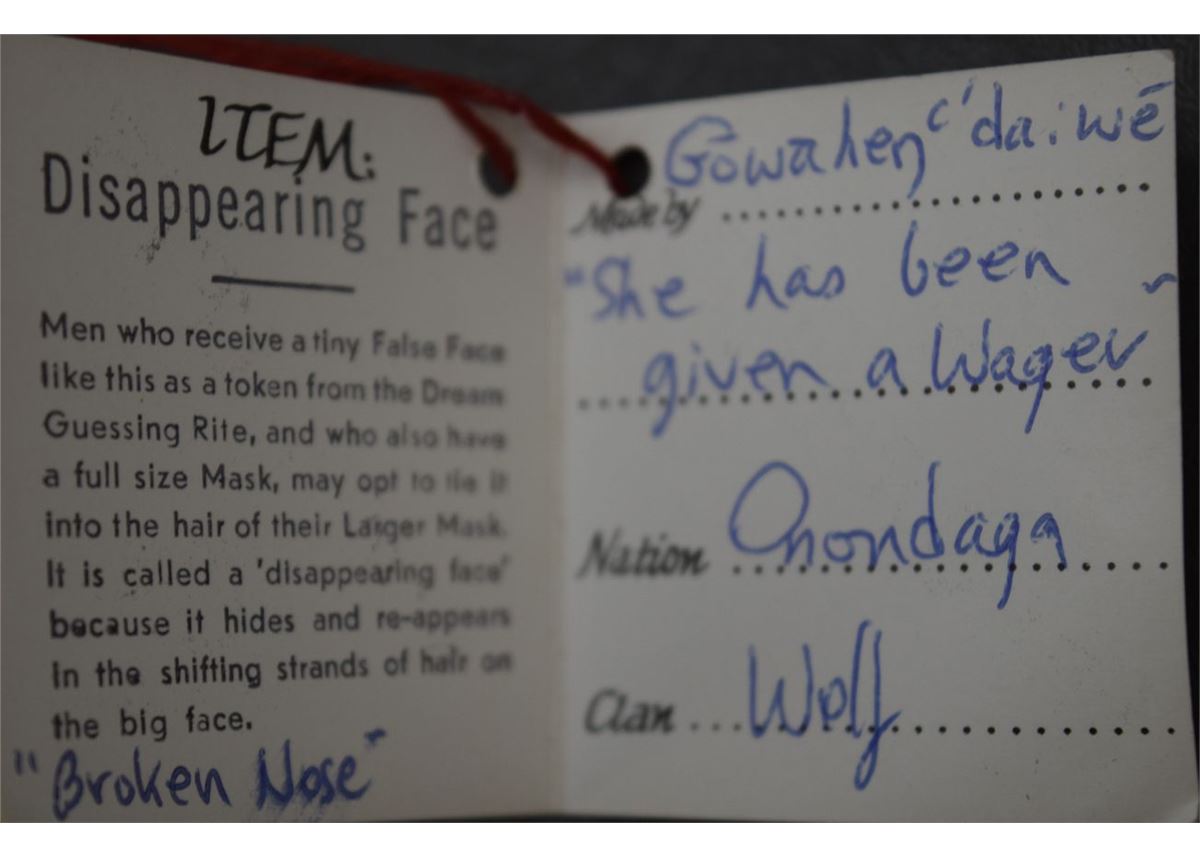 ITEM:
Disappearing Face
Men who receive a tiny False Face
like this as a token from the Dream
Guessing Rite, and who also have
a full size Mask, may opt to tie it
into the hair of their Larger Mask.
It is called a 'disappearing face'
because it hides and re-appears
in the shifting strands of hair on
the big face.
"Broken Nose"
Gowahenc'da:wē
Made by
"She has been
given a Wager
Nation Onondaga
Clan Wolf